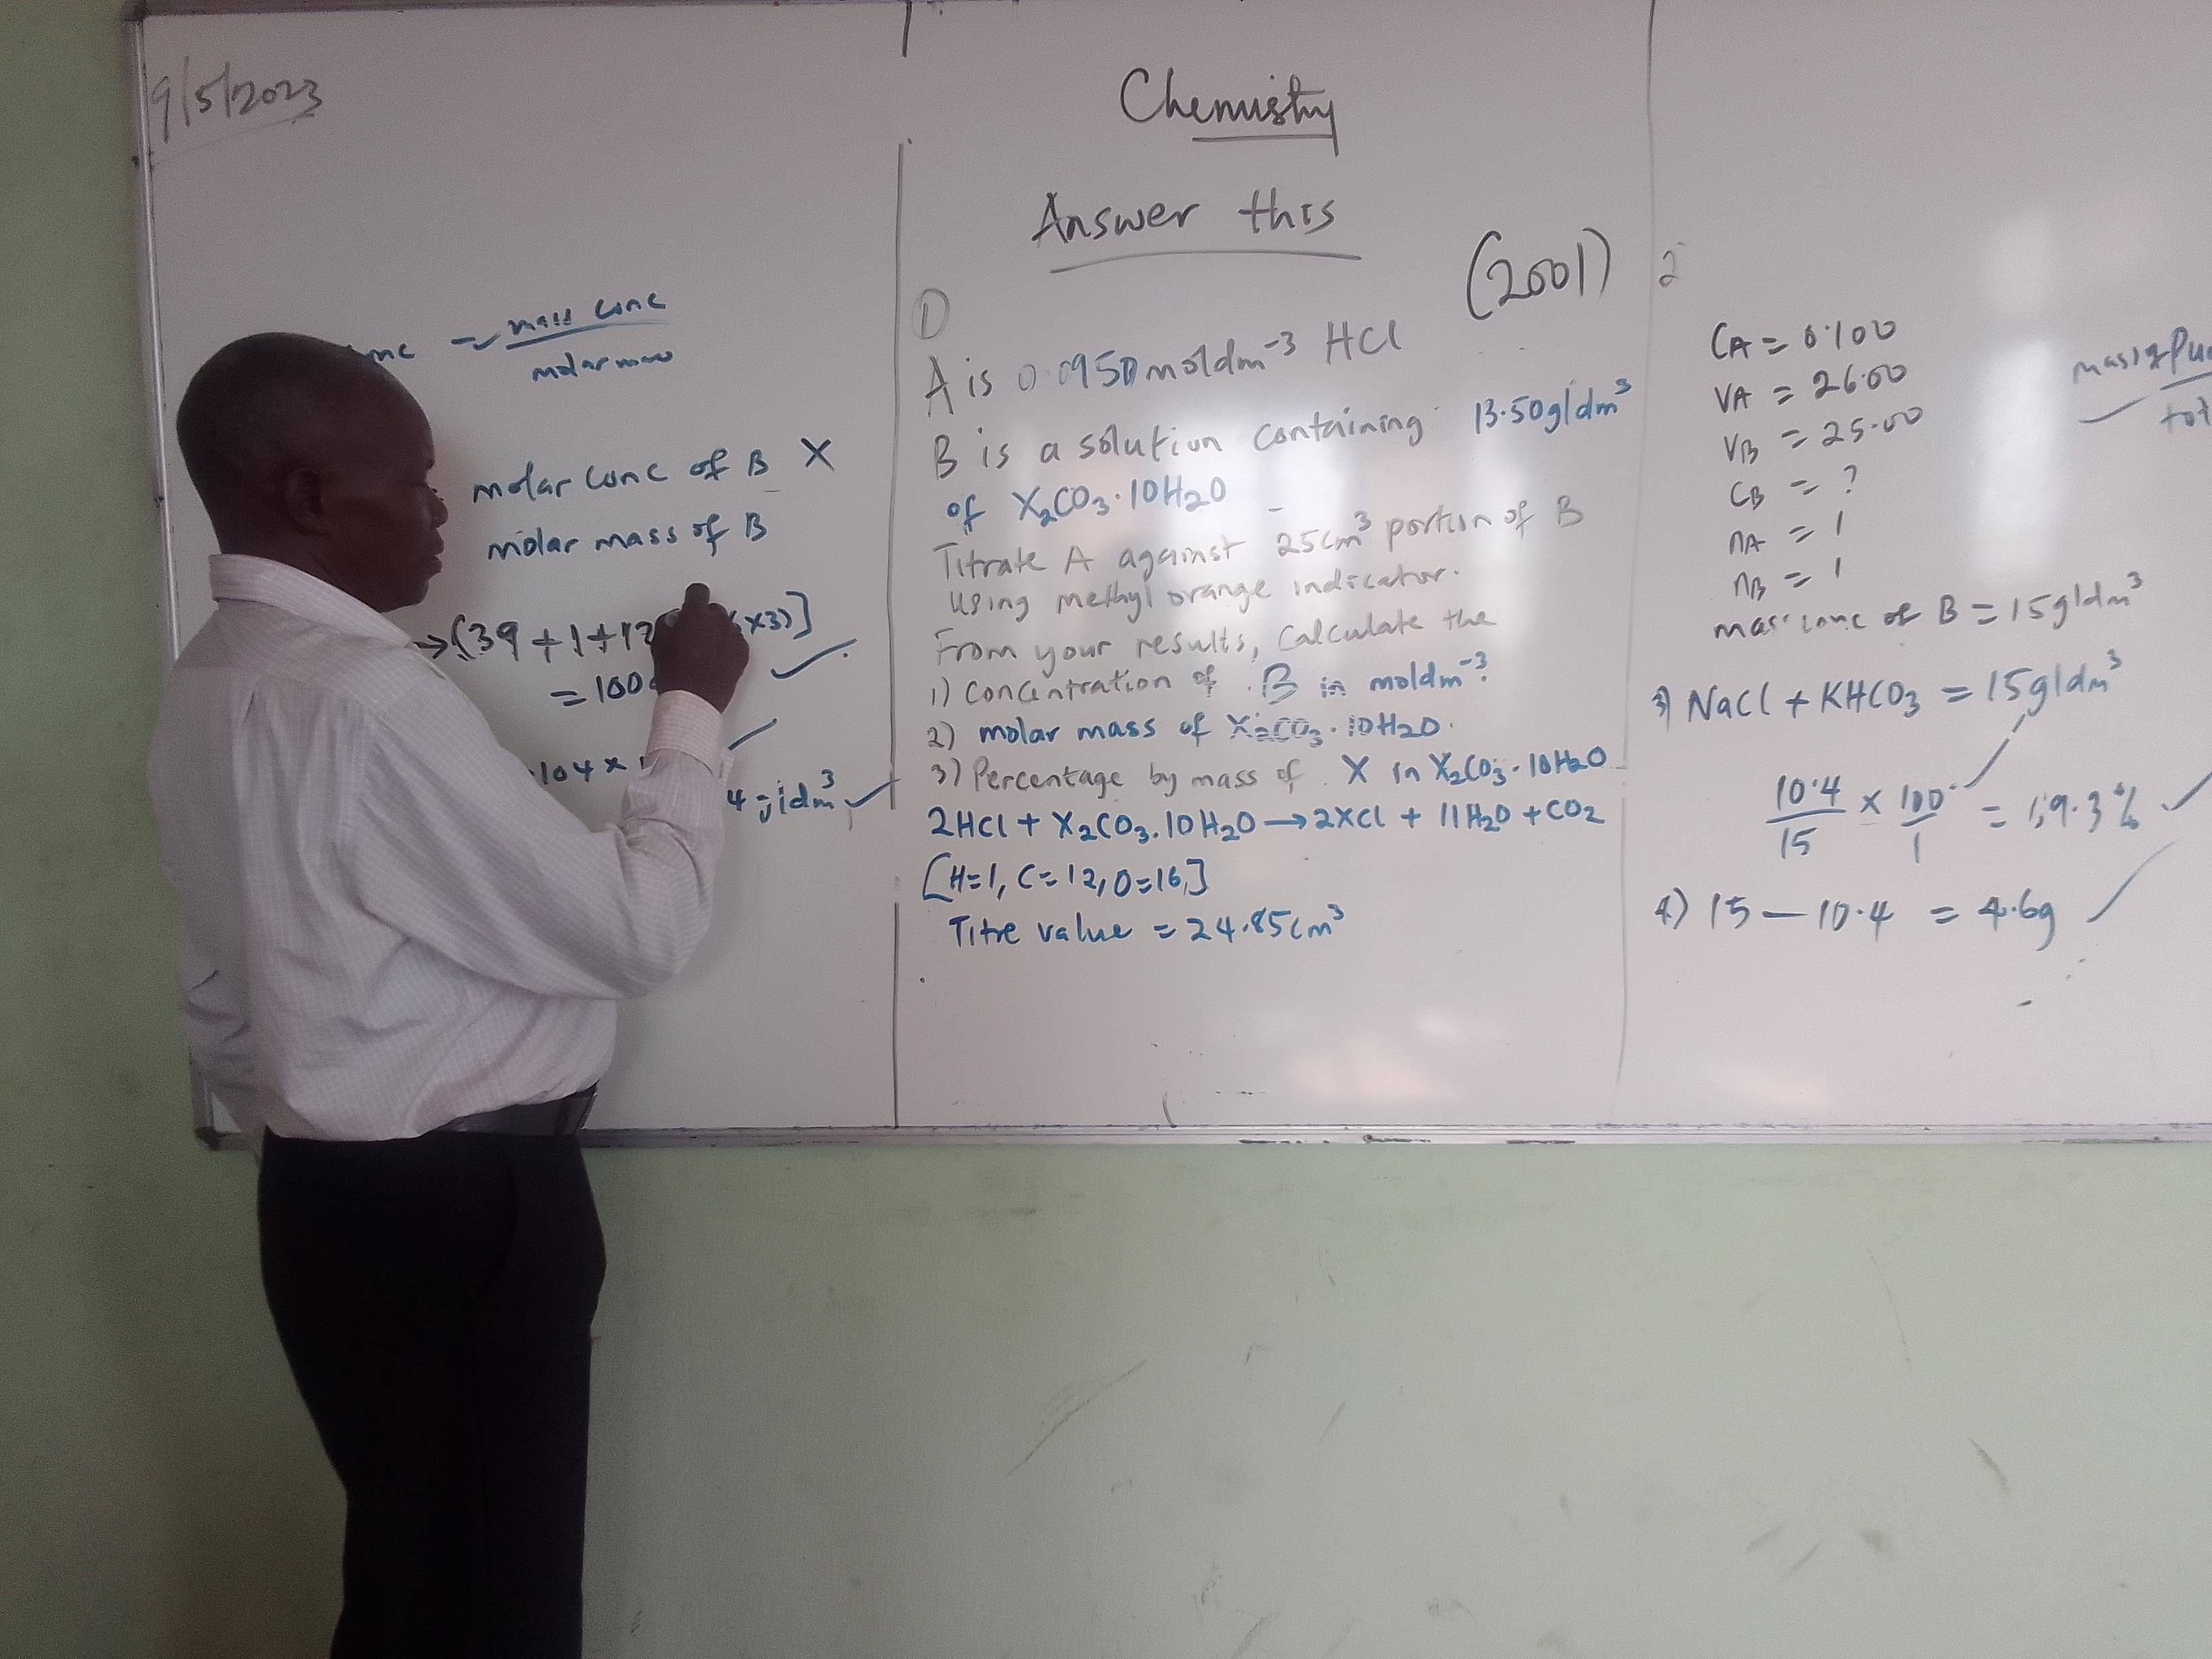 9/5/2023
= mass conc
molar mass
molar conc of B X
molar mass of B
→ (39 + 1 + 12 ×3)]
= 100
104 ×
4 g/dm³
Chemistry
Answer this
(2001)
①
A is 0.0950 moldm⁻³ HCl
B is a solution containing 13.50g/dm³
of X₂CO₃·10H₂O
Titrate A against 25cm³ portion of B
Using methyl orange indicator.
From your results, calculate the
1) Concentration of B in moldm⁻³
2) molar mass of X₂CO₃·10H₂O.
3) Percentage by mass of X in X₂CO₃·10H₂O
2HCl + X₂CO₃.10H₂O → 2XCl + 11H₂O + CO₂
[H=1, C=12, O=16,]
Titre value = 24.85cm³
2
CA = 0.100
VA = 26.00
VB = 25.00
CB = ?
nA = 1
nB = 1
mass conc of B = 15g/dm³
3) NaCl + KHCO₃ = 15g/dm³
10.4/15 × 100/1 = 69.3%
4) 15 — 10.4 = 4.6g